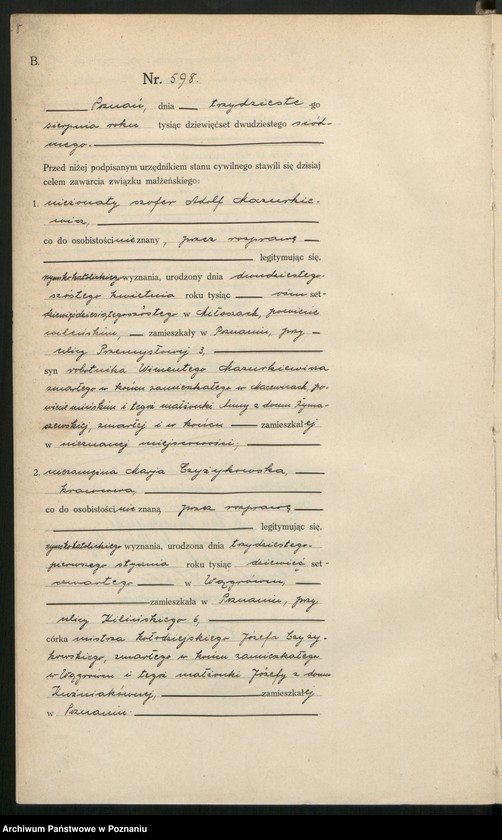 B.
Nr. 598.
Poznań, dnia trzydzieste go
sierpnia roku tysiąc dziewięćset dwudziestego siód-
mego.
Przed niżej podpisanym urzędnikiem stanu cywilnego stawili się dzisiaj
celem zawarcia związku małżeńskiego:
1. nieżonaty szofer Adolf Mazurkie-
wicz,
co do osobistości nie znany, przez rozprawę
legitymując się,
rzymskokatolickiego wyznania, urodzony dnia dwudziestego-
szóstego kwietnia roku tysiąc ośmset-
dziewięćdziesiątegoszóstego w Miłoszach, powiecie
wileńskim, zamieszkały w Poznaniu, przy
ulicy Przemysłowej 3,
syn robotnika Wincentego Mazurkiewicza
zmarłego w końcu zamieszkałego w po-
wiecie mińskim i tegoż małżonki Anny z domu Żyma-
szewskiej, zmarłej i w końcu zamieszkałej
w nieznanej miejscowości,
2. niezamężna Marja Czyżykowska,
krawcowa,
co do osobistości nie znaną przez rozprawę
legitymując się,
rzymskokatolickiego wyznania, urodzona dnia trzydziestego-
pierwszego stycznia roku tysiąc dziewięć set-
czwartego w Wągrówcu,
zamieszkała w Poznaniu, przy
ulicy Kilińskiego 6,
córka mistrza kołodziejskiego Józefa Czyży-
kowskiego, zmarłego w końcu zamieszkałego
w Wągrówcu i tegoż małżonki Józefy z domu
Kuźniakówny, zamieszkałej
w Poznaniu
Archiwum Państwowe w Poznaniu